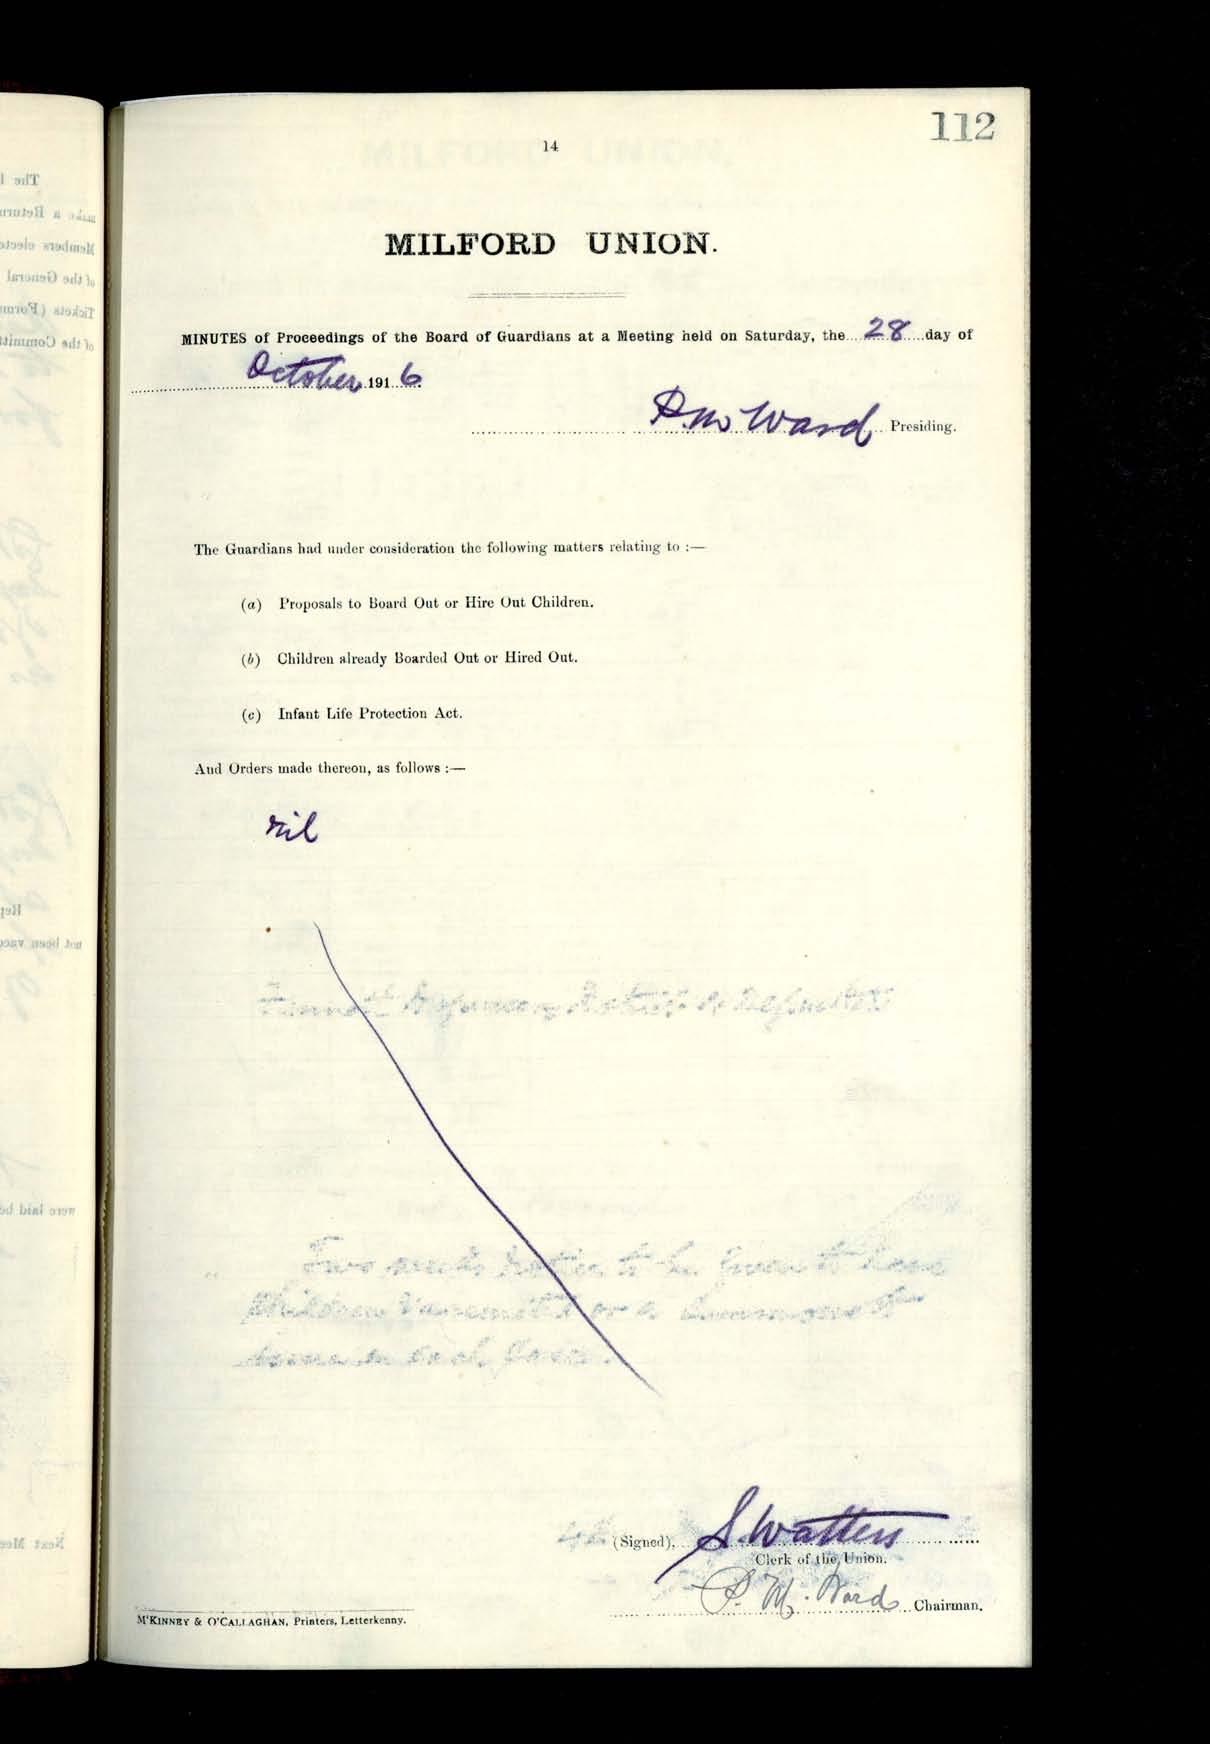 112
14
MILFORD UNION.
MINUTES of Proceedings of the Board of Guardians at a Meeting held on Saturday, the 28 day of
October 1916.
P. M. Ward Presiding.
The Guardians had under consideration the following matters relating to :—
(a) Proposals to Board Out or Hire Out Children.
(b) Children already Boarded Out or Hired Out.
(c) Infant Life Protection Act.
And Orders made thereon, as follows :—
nil
(Signed), S Watters
Clerk of the Union.
P. M. Ward Chairman.
M'KINNEY & O'CALLAGHAN, Printers, Letterkenny.